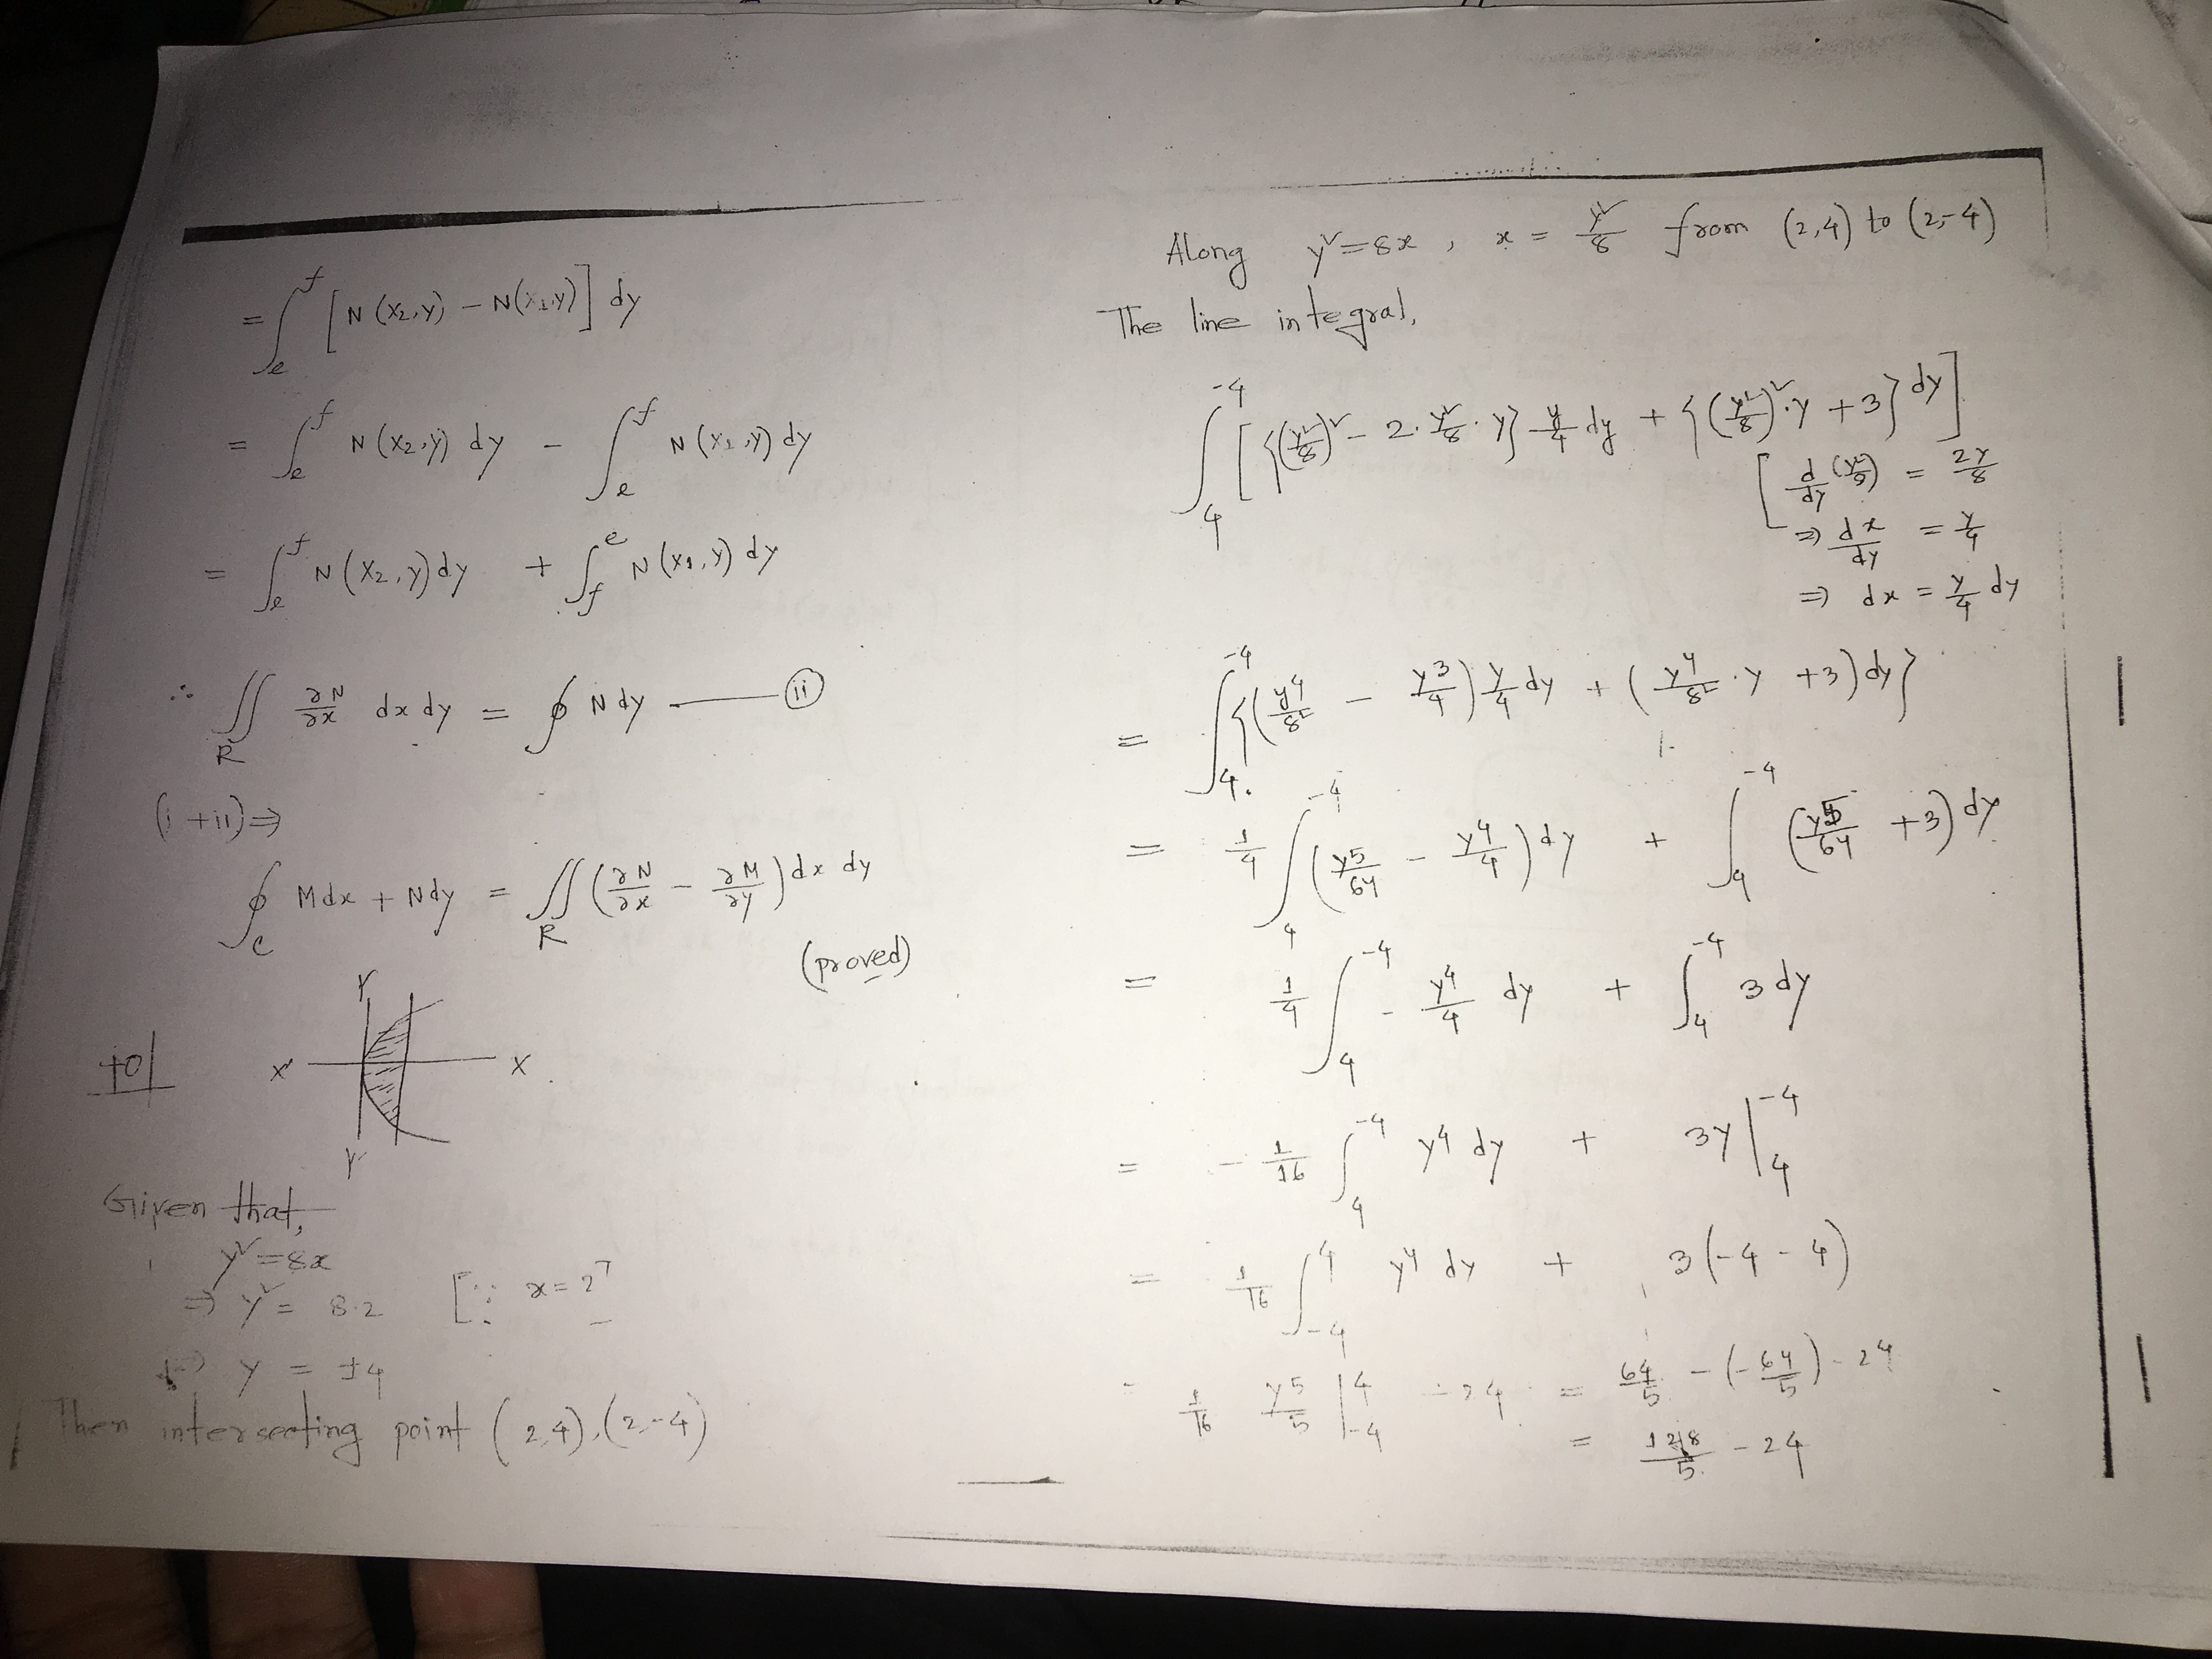 = ∫_e^f [N(x₂,y) − N(x₁,y)] dy
= ∫_e^f N(x₂,y) dy − ∫_e^f N(x₁,y) dy
= ∫_e^f N(x₂,y) dy + ∫_f^e N(x₁,y) dy
∴ ∬_R ∂N/∂x dx dy = ∮ N dy —— (ii)
(i + ii) ⇒
∮_c Mdx + Ndy = ∬_R (∂N/∂x − ∂M/∂y) dx dy
(proved)
10
Y
X' X
Y'
Given that,
y² = 8x
⇒ y² = 8·2 [∵ x = 2]
⇒ y = ±4
Then intersecting point (2,4), (2,-4)
Along y² = 8x, x = y²/8 from (2,4) to (2,-4)
The line integral,
∫_4^-4 [{(y²/8)² − 2·y²/8·y} y/4 dy + {(y²/8)²·y + 3} dy]
[d/dy (y²/8) = 2y/8
⇒ dx/dy = y/4
⇒ dx = y/4 dy
= ∫_4^-4 {(y⁴/8² − y³/4) y/4 dy + (y⁴/8²·y + 3) dy}
= 1/4 ∫_4^-4 (y⁵/64 − y⁴/4) dy + ∫_4^-4 (y⁵/64 + 3) dy
= 1/4 ∫_4^-4 − y⁴/4 dy + ∫_4^-4 3 dy
= − 1/16 ∫_4^-4 y⁴ dy + 3y |_4^-4
= 1/16 ∫_-4^4 y⁴ dy + 3(-4 - 4)
= 1/16 y⁵/5 |_-4^4 − 24 = 64/5 − (−64/5) − 24
= 128/5 − 24